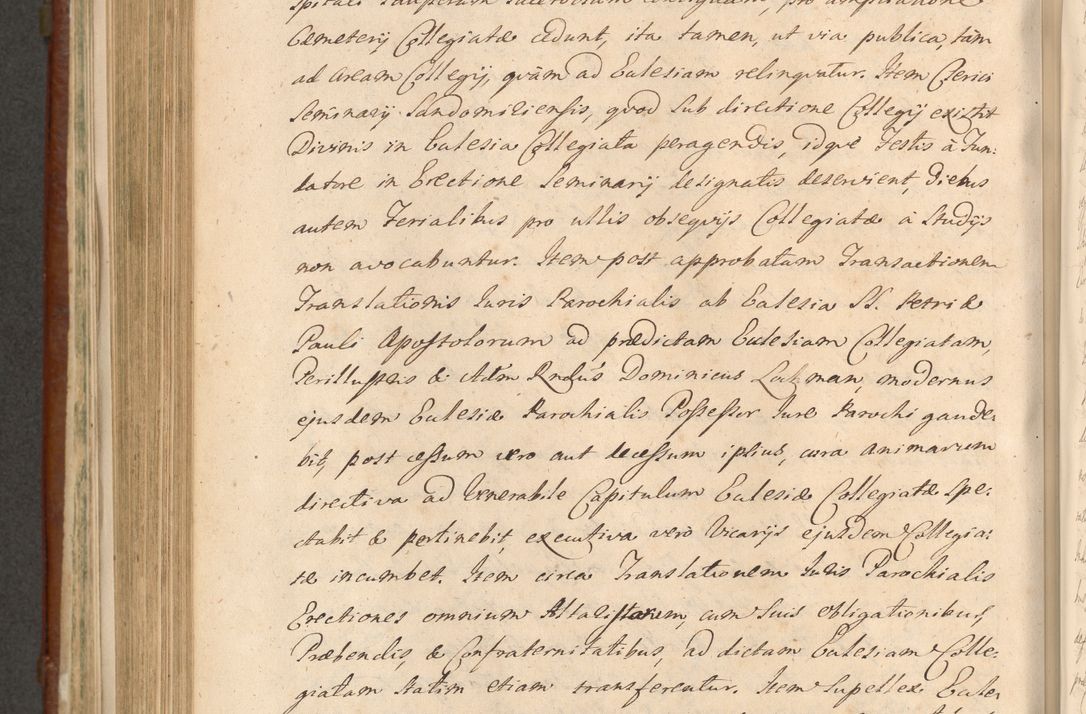 spitali Pauperum Sacerdotum contiguam, pro ampliatione
Cæmeterij Collegiatæ cedunt, ita tamen, ut via publica, tàm
ad Aream Collegij, qvàm ad Eclesiam relinqvatur. Item Clerici
Seminarij Sandomiriensis, qvod sub directione Collegij existit
Divinis in Eclesia Collegiata peragendis, idqve Festis à Fun:
datore in Erectione Seminarij designatis deservient, diebus
autem Ferialibus pro ullis obseqvijs Collegiatæ à Studijs
non avocabuntur. Item post approbatam Transactionem
Translationis Iuris Parochialis ab Eclesia SS. Petri &
Pauli Apostolorum ad prædictam Eclesiam Collegiatam,
Perillustris & Adm Rndus Dominicus Lochman, modernus
ejusdem Eclesiæ Parochialis Possessor Iure Parochi gaude:
bit, post cessum vero aut decessum ipsius, cura animarum
directiva ad Venerabile Capitulum Eclesiæ Collegiatæ spe:
ctabit & pertinebit, executiva verò Vicarijs ejusdem Collegia:
tæ incumbet. Item circa Translationem Iuris Parochialis
Erectiones omnium Altaristarum, cum suis obligationibus,
Præbendis, & Confraternitatibus, ad dictam Eclesiam Colle:
giatam statim etiam transferentur. Item Supellex Ecle: